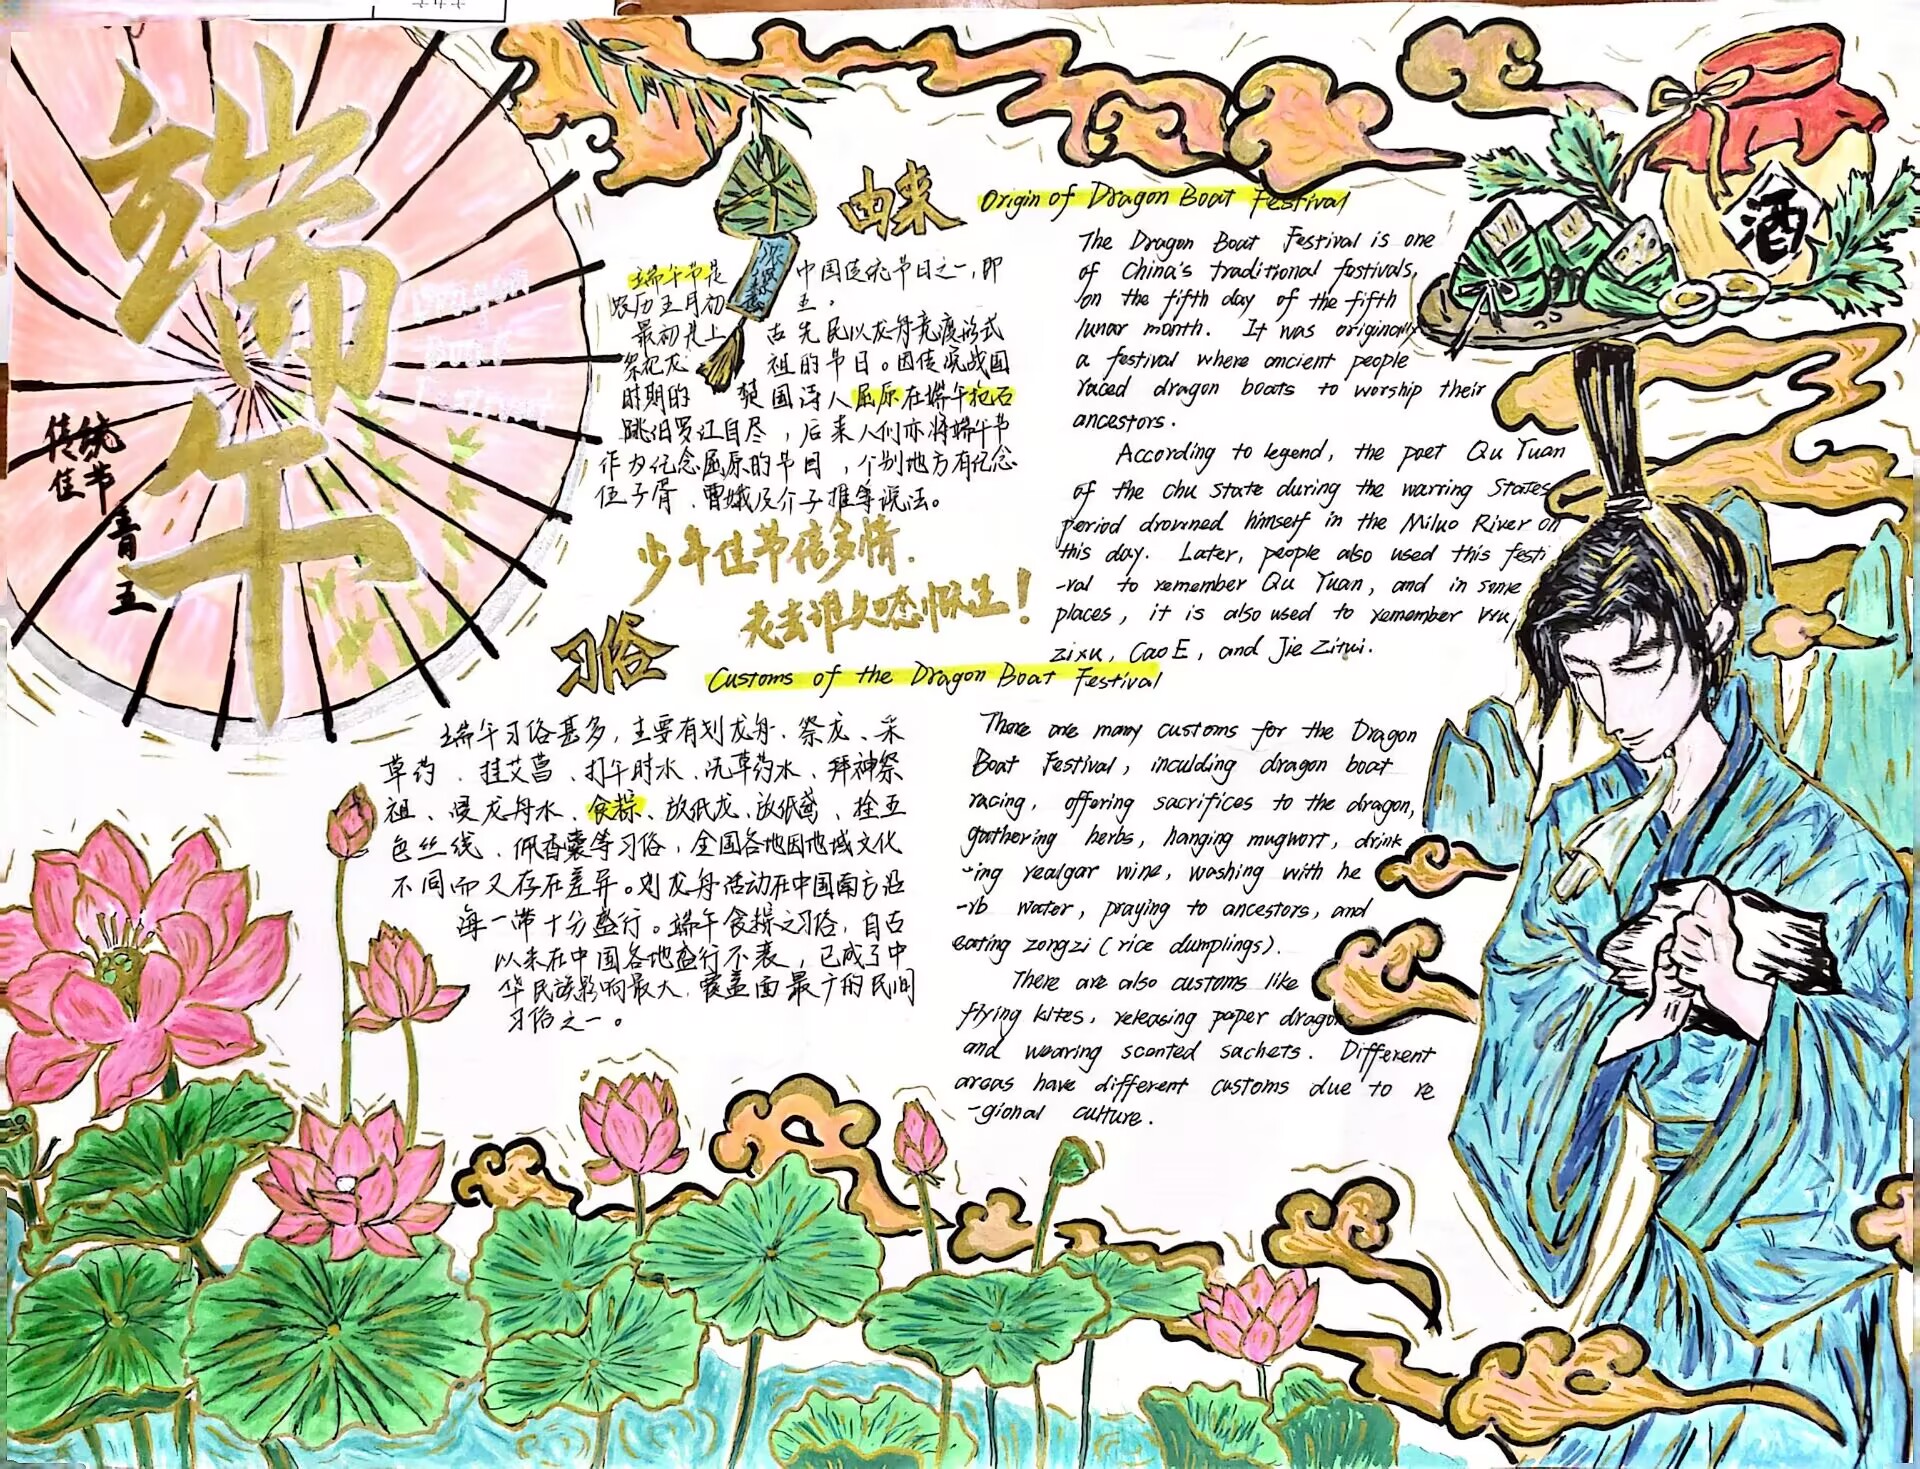 端午
Dragon
Boat
Festival
传统
佳节
由来
Origin of Dragon Boat Festival
端午节是中国传统节日之一,即
农历五月初五。
最初是上古先民以龙舟竞渡形式
祭祀龙祖的节日。因传说战国
时期的楚国诗人屈原在端午抱石
跳汨罗江自尽,后来人们亦将端午节
作为纪念屈原的节日,个别地方有纪念
伍子胥、曹娥及介子推等说法。
The Dragon Boat Festival is one
of China's traditional festivals,
on the fifth day of the fifth
lunar month. It was originally
a festival where ancient people
raced dragon boats to worship their
ancestors.
According to legend, the poet Qu Yuan
of the Chu State during the warring States
period drowned himself in the Miluo River on
this day. Later, people also used this festi
-val to remember Qu Yuan, and in some
places, it is also used to remember Wu
zixu, Cao E, and Jie Zitui.
少年佳节倍多情,
老去谁知感慨生!
习俗
Customs of the Dragon Boat Festival
端午习俗甚多,主要有划龙舟、祭龙、采
草药、挂艾菖、打午时水、洗草药水、拜神祭
祖、浸龙舟水、食粽、放纸龙、放纸鸢、拴五
色丝线、佩香囊等习俗,全国各地因地域文化
不同而又存在差异。划龙舟活动在中国南方沿
海一带十分盛行。端午食粽之习俗,自古
以来在中国各地盛行不衰,已成了中
华民族影响最大、覆盖面最广的民间
习俗之一。
There are many customs for the Dragon
Boat Festival, inculding dragon boat
racing, offering sacrifices to the dragon,
gathering herbs, hanging mugwort, drink
-ing realgar wine, washing with he
-rb water, praying to ancestors, and
eating zongzi (rice dumplings).
There are also customs like
flying kites, releasing paper dragons
and wearing scented sachets. Different
areas have different customs due to re
-gional culture.
酒